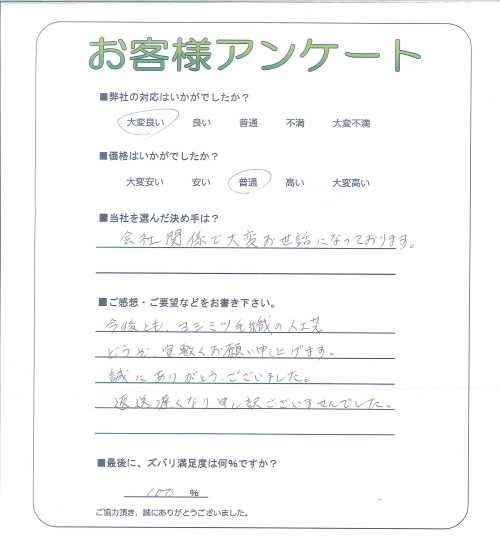 お客様アンケート
■弊社の対応はいかがでしたか？
大変良い 良い 普通 不満 大変不満
■価格はいかがでしたか？
大変安い 安い 普通 高い 大変高い
■当社を選んだ決め手は？
会社関係で大変お世話になっております。
■ご感想・ご要望などをお書き下さい。
今後とも、ヨシミツ毛織の人工芝
どうぞ、宜敷くお願い申し上げます。
誠にありがとうございました。
返送遅くなり申し訳ございませんでした。
■最後に、ズバリ満足度は何%ですか？
100 %
ご協力頂き、誠にありがとうございました。